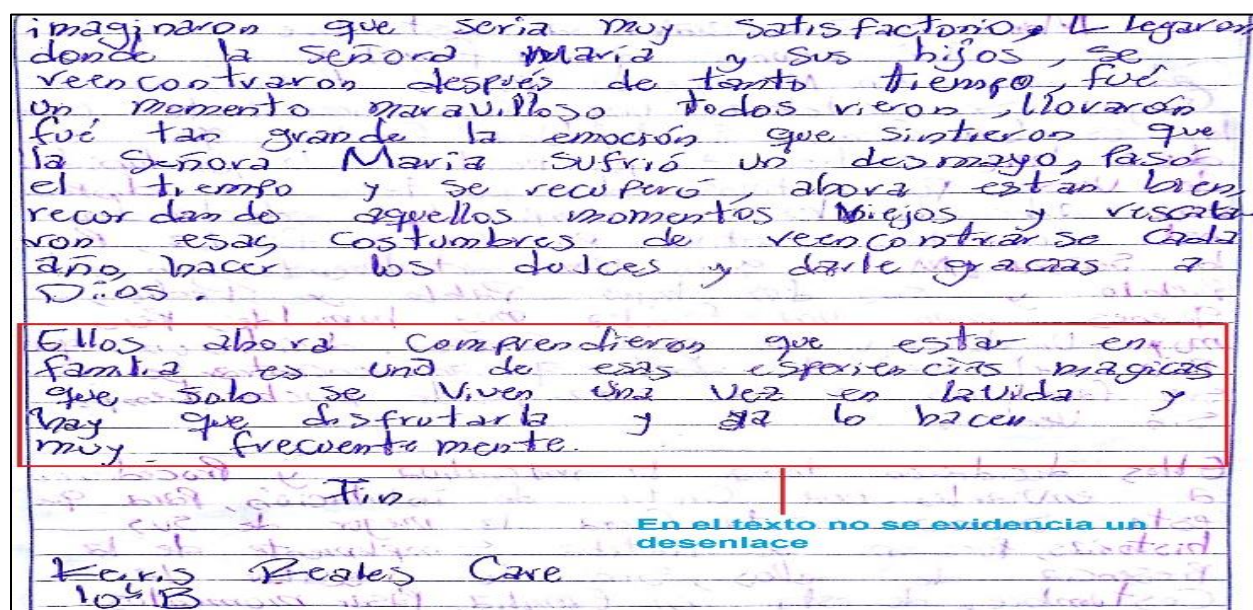 imaginaron que seria muy satisfactorio, Llegaron
donde la Señora María y sus hijos, se
reencontraron después de tanto tiempo, fué
un momento maravilloso todos rieron, llorarón
fué tan grande la emoción que sintieron que
la Señora María sufrió un desmayo, Pasó
el tiempo y se recuperó, ahora están bien
recordando aquellos momentos viejos y rescata
ron esas costumbres de reencontrarse cada
año, hacer los dulces y darle gracias a
Dios.
Ellos ahora comprendieron que estar en
familia es una de esas esperiencias magicas
que solo se viven una vez en la vida y
hay que disfrutarla y ya lo hacen
muy frecuentemente.
Fin
En el texto no se evidencia un
desenlace
Keiris Reales Care
10° B